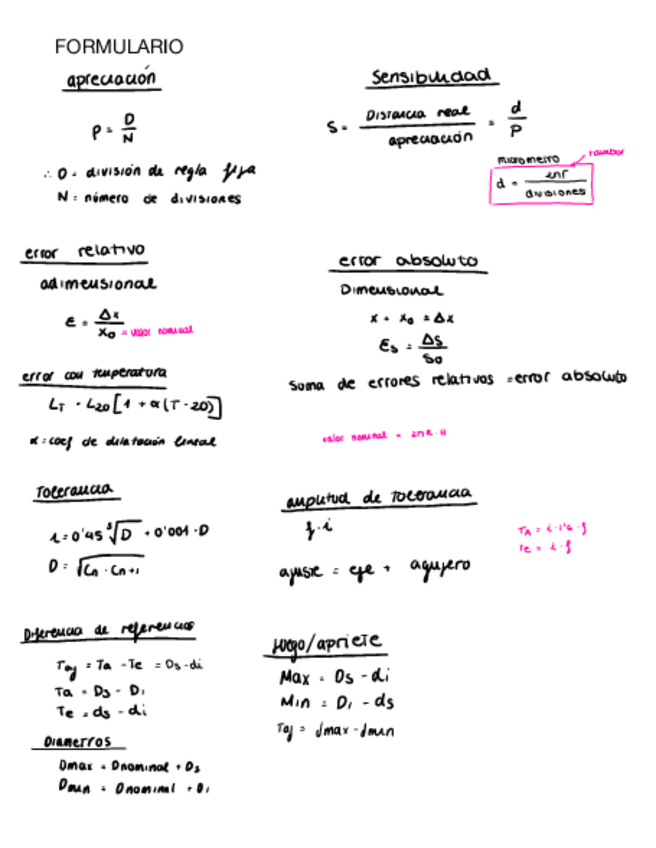 FORMULARIO
apreciación
P = D/N
∴ D = división de regla fija
N = número de divisiones
Sensibilidad
S = Distancia real / apreciación = d/P
micrometro
tambor
d = 2πr / divisiones
error relativo
adimensional
ε = Δx / x₀ = valor nominal
error absoluto
Dimensional
x - x₀ = Δx
εs = Δs / s₀
Soma de errores relativos = error absoluto
error con temperatura
L_T = L₂₀ [1 + α(T - 20)]
α = coef de dilatación lineal
valor nominal = 2πR · H
Tolerancia
i = 0'45 ∛D + 0'001 · D
D = √(Cn · Cn+1)
amplitud de tolerancia
f · i
ajuste = eje + agujero
TA = i · 1'6 · f
Te = i · f
Diferencia de referencias
Taj = Ta - Te = Ds - di
Ta = Ds - Di
Te = ds - di
Diametros
Dmax = Dnominal + Ds
Dmin = Dnominal + Di
Juego/apriete
Max = Ds - di
Min = Di - ds
Taj = Jmax - Jmin